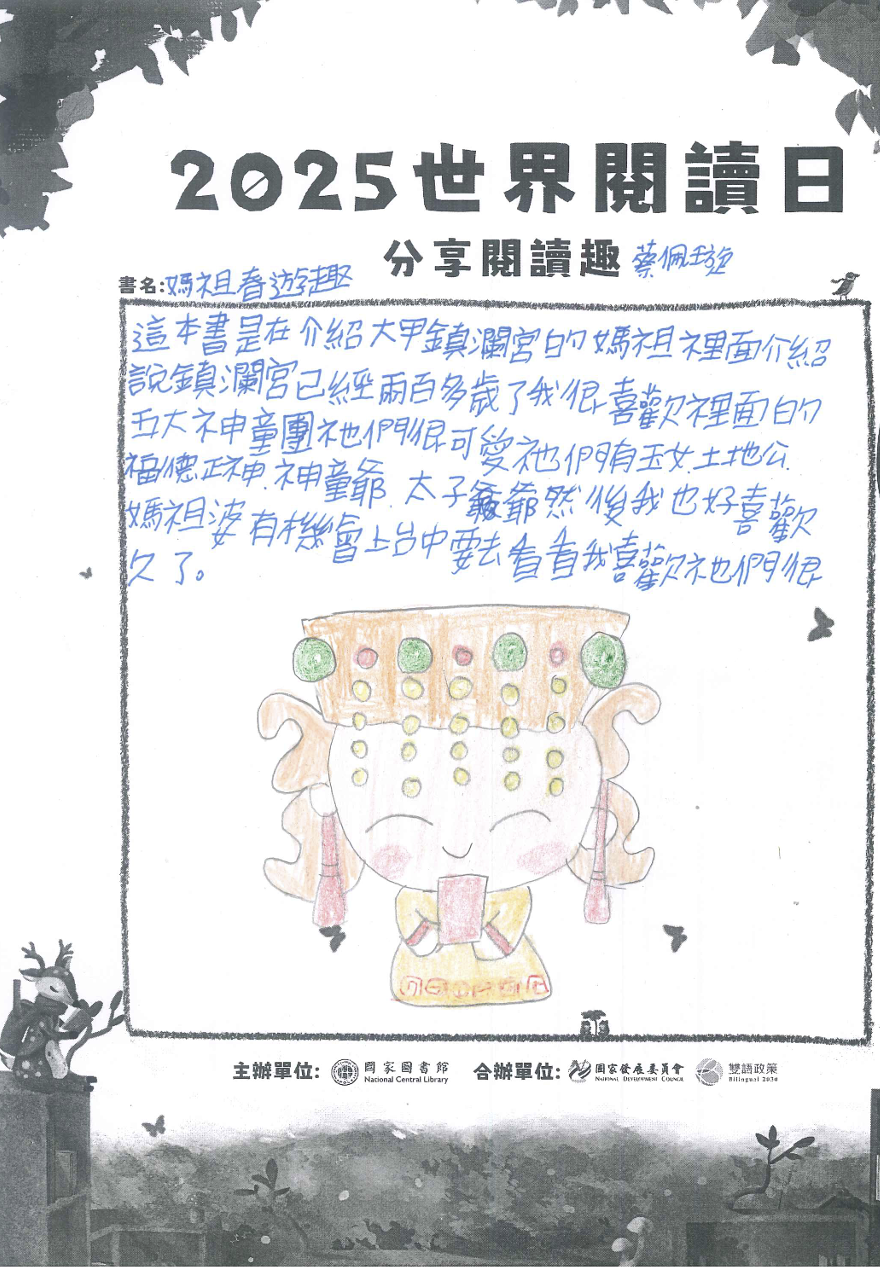 2025世界閱讀日
分享閱讀趣 蔡佩璇
書名:媽祖春遊趣
這本書是在介紹大甲鎮瀾宮的媽祖裡面介紹
說鎮瀾宮已經兩百多歲了我很喜歡裡面的
五大神童團祂們很可愛祂們有玉女土地公
福德正神神童爺太子爺爺然後我也好喜歡
媽祖婆有機會上台中要去看看我喜歡祂們很
久了。
主辦單位: 國家圖書館 合辦單位: 國家發展委員會 雙語政策
National Central Library NATIONAL DEVELOPMENT COUNCIL Bilingual 2030